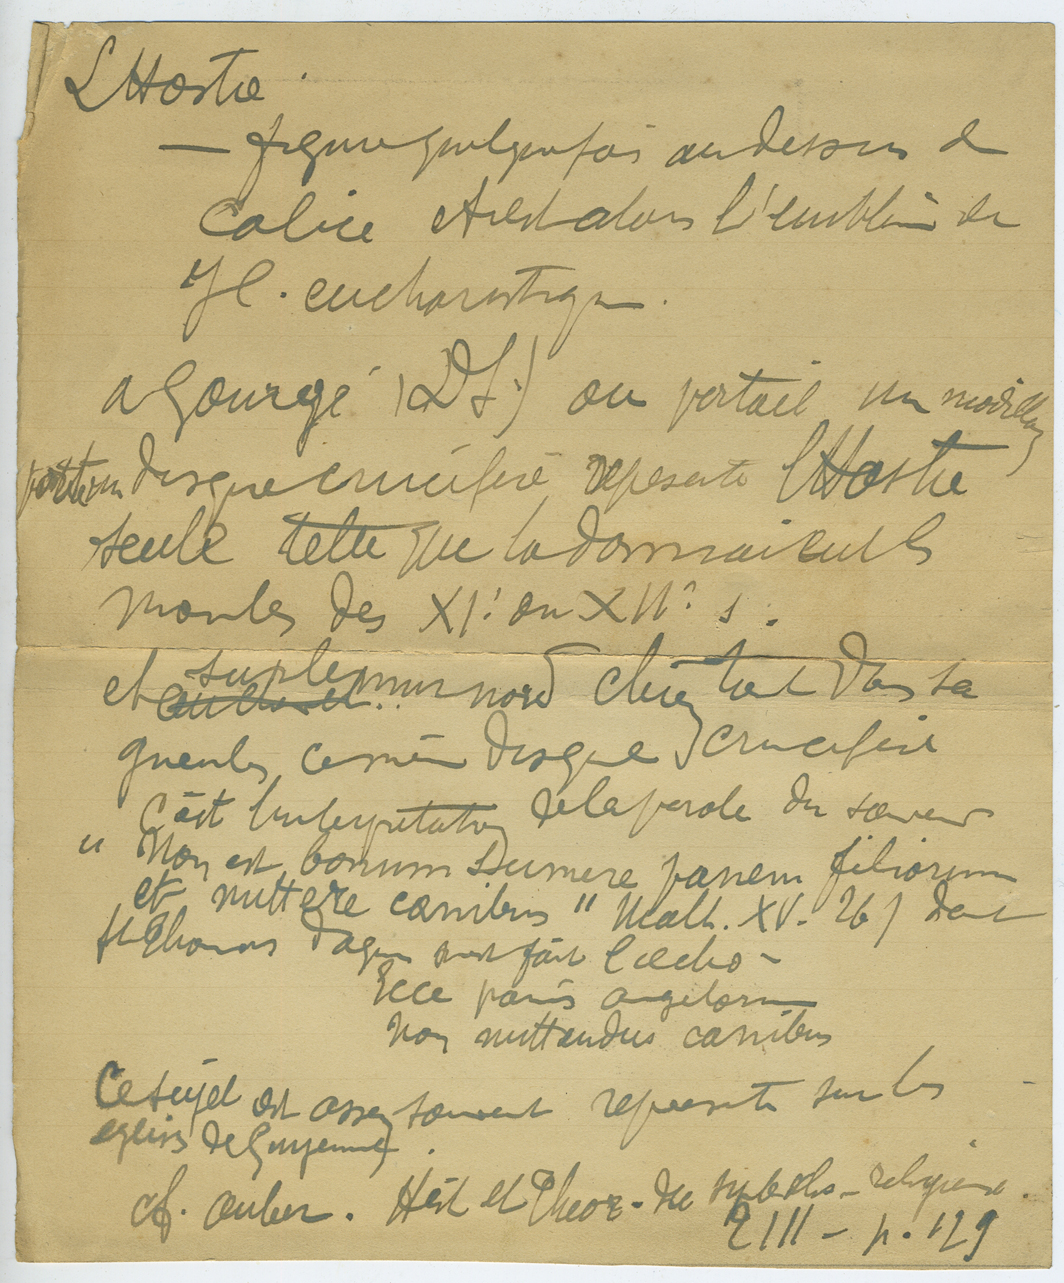 L'Hostie
— figure quelquefois au dessus de
calice et il est alors l'emblème de
J C. eucharistique.
a Gourgé (D S.) au portail un modillon
portant un disque crucifère represente l'Hostie
seule telle que la donnaient les
moules des XIe. ou XIIe. s.
et sur le mur nord chien tient dans sa
gueule, ce même disque crucifère
C'est l'interpretation de la parole du sauveur
" Non est bonum sumere panem filiorum
et mittere canibus " Math. XV. 26) dont
St Thomas d'aquin s'est fait l'echo -
Ecce panis angelorum
Non mittendus canibus
Ce sujet est assez souvent represente sur les
eglises de Guyenne.
cf. auber. Hist et Theor - du symbolis - religieux.
T III - p. 129